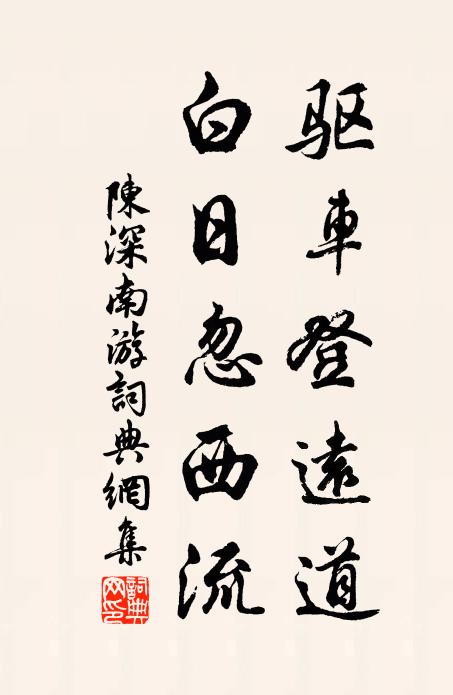 驱車登遠道
白日忽西流
陳深南游詞典網集
詞典网印